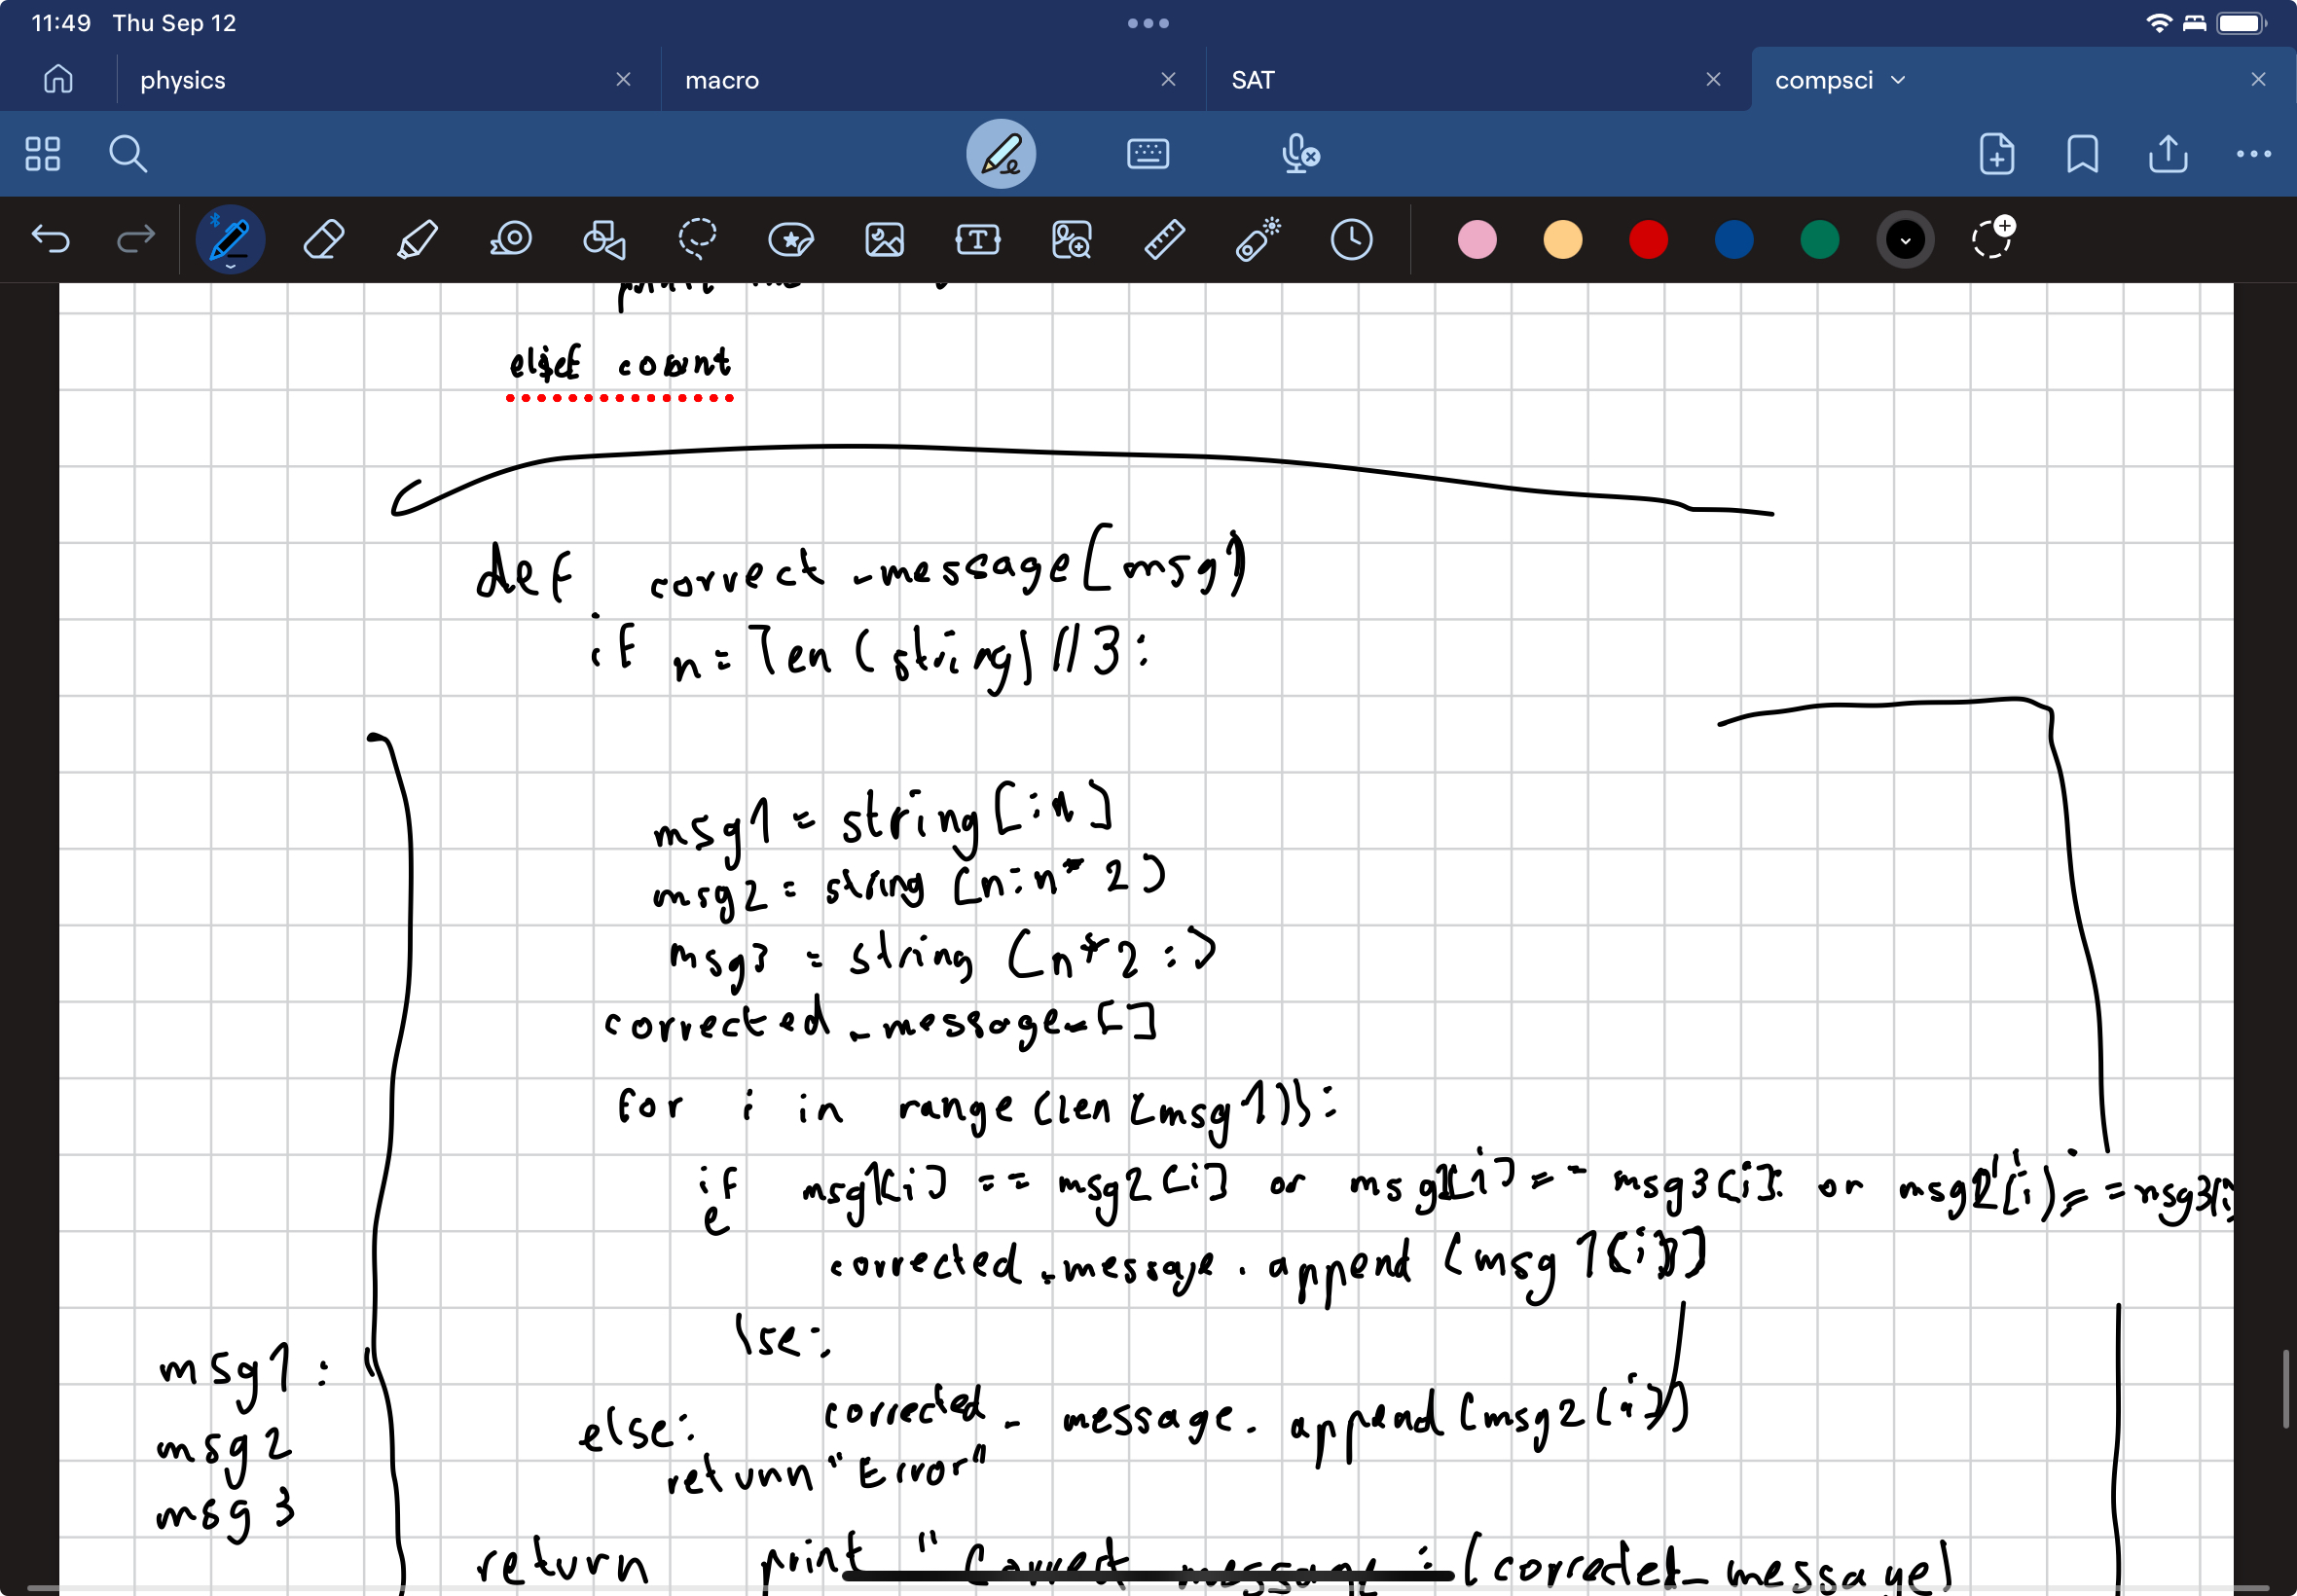 11:49 Thu Sep 12
physics macro SAT compsci
elif count
def correct_message(msg)
if n = len(string)//3:
msg1 = string[:n]
msg2 = string[n:n*2]
msg3 = string[n*2:]
corrected_message=[]
for i in range(len(msg1)):
if msg1[i] == msg2[i] or msg1[i] == msg3[i]: or msg2[i] == msg3[i]
e
corrected_message.append(msg1[i])
lse:
msg1:
else: corrected_message.append(msg2[i])
msg2
return "Error"
msg3
return print "Correct message :(corrected_message)